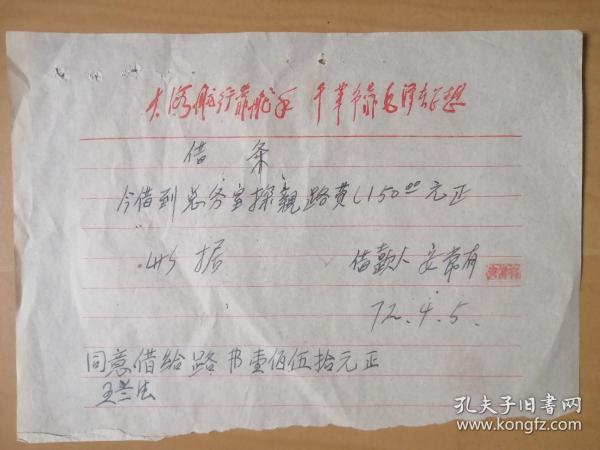 大海航行靠舵手 干革命靠毛泽东思想
借条
今借到总务室探親路费(150⁰⁰元正
此据 借款人 安常有
72.4.5.
同意借给路书壹佰伍拾元正
王兰生
孔夫子旧书网
www.kongfz.com